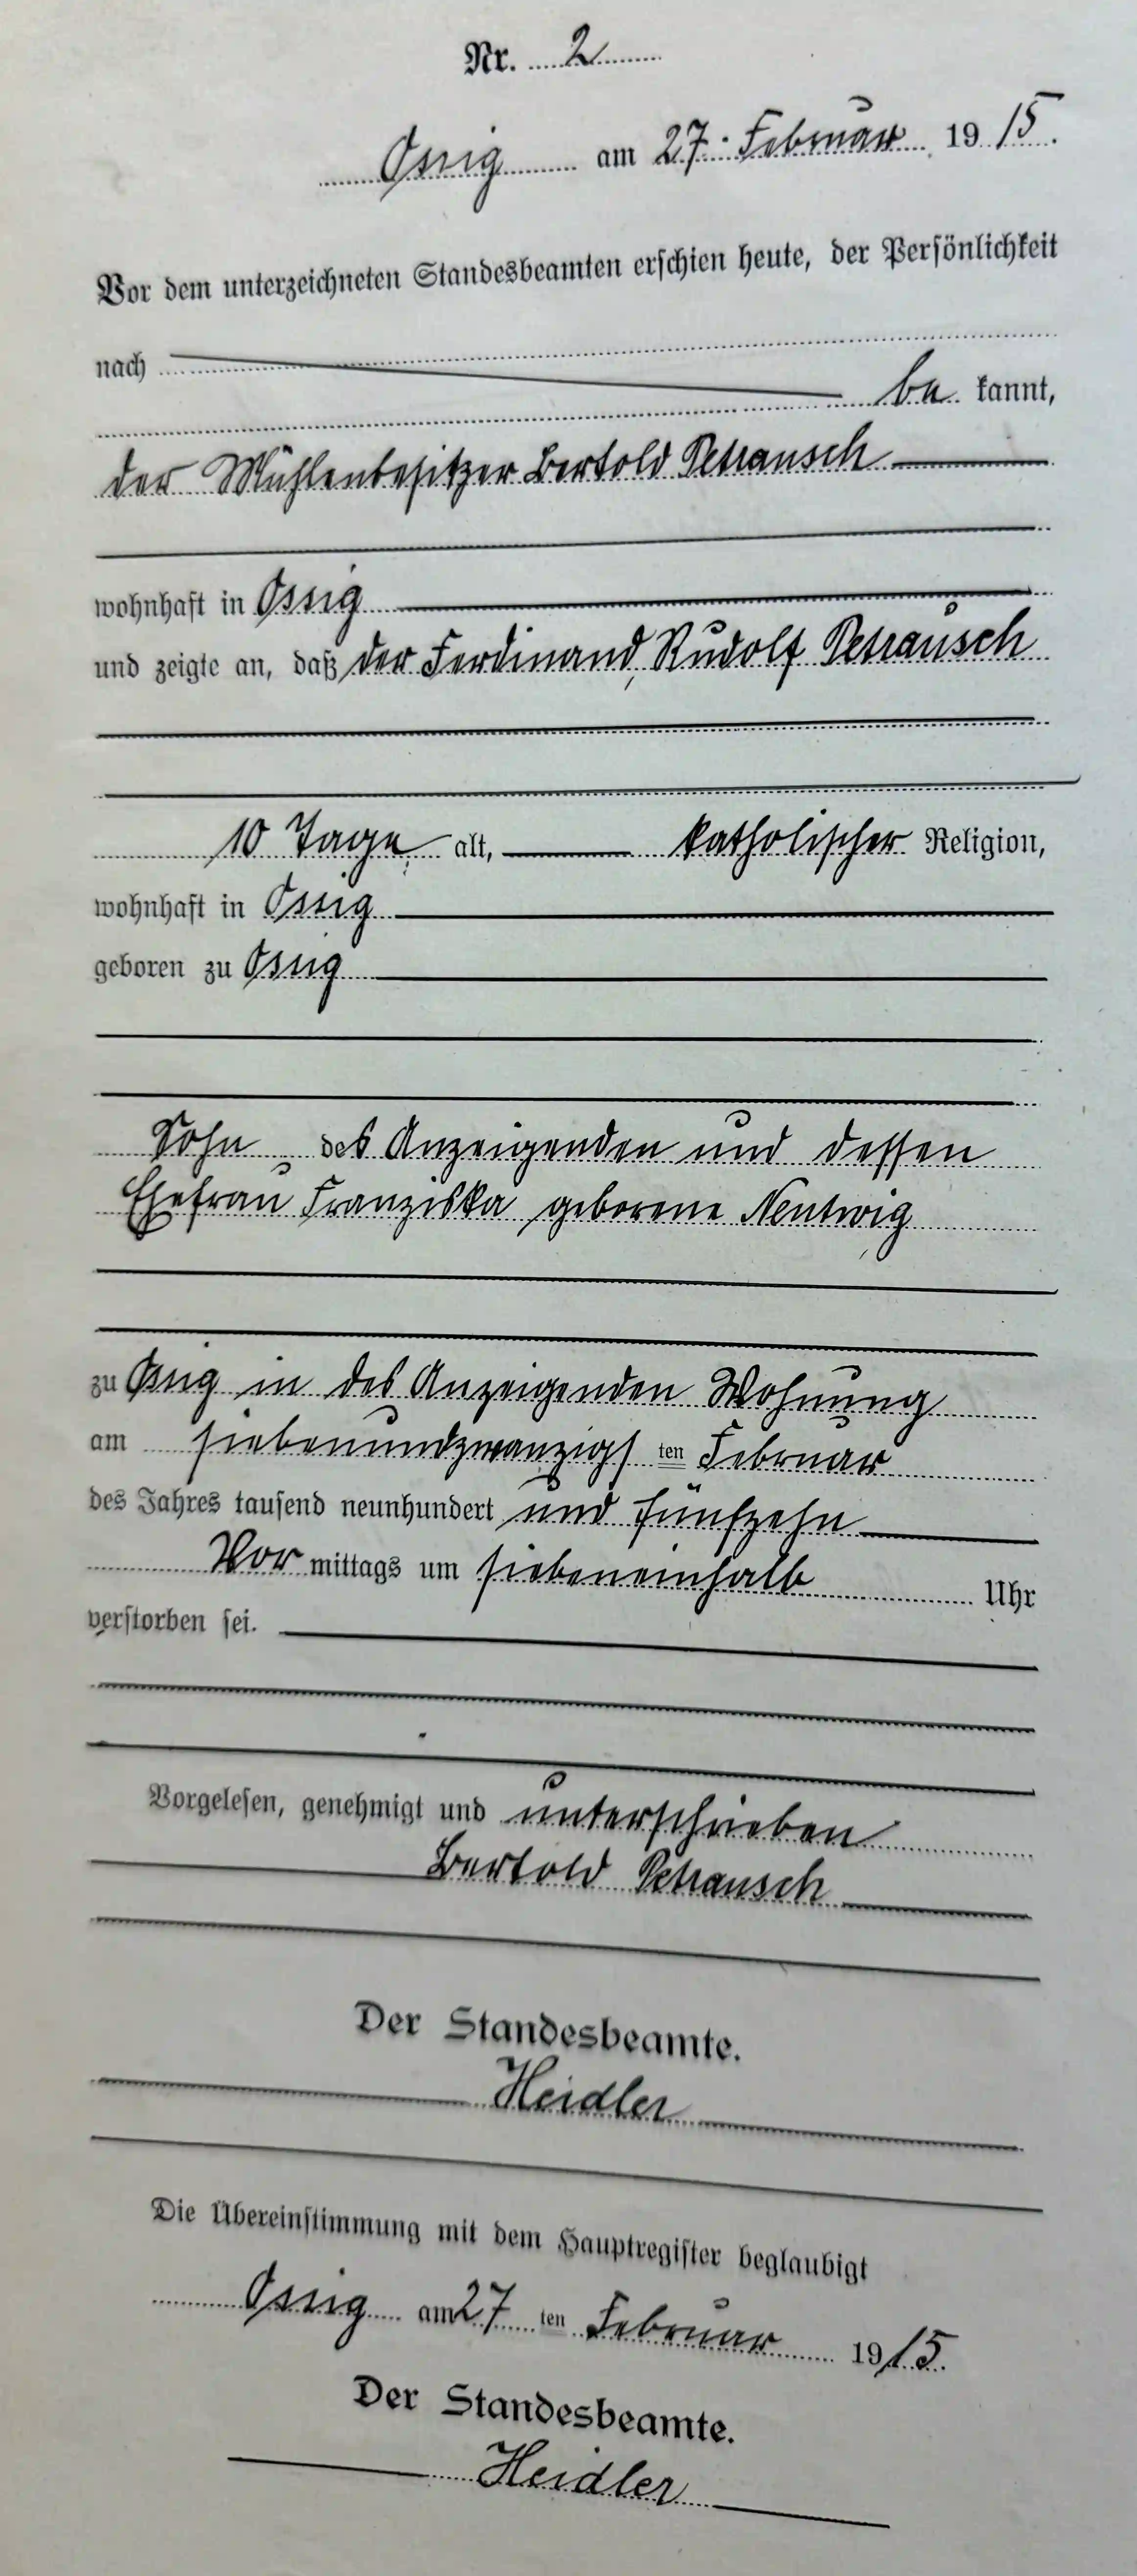 Nr. 2
Ossig am 27. Februar 1915.
Vor dem unterzeichneten Standesbeamten erschien heute, der Persönlichkeit
nach
be kannt,
der Mühlenbesitzer Bertold Petrausch
wohnhaft in Ossig
und zeigte an, daß der Ferdinand, Rudolf Petrausch
10 Tage alt, katholischer Religion,
wohnhaft in Ossig
geboren zu Ossig
Sohn des Anzeigenden und dessen
Ehefrau Franziska geborene Nentwig
zu Ossig in des Anzeigenden Wohnung
am siebenundzwanzigs ten Februar
des Jahres tausend neunhundert und fünfzehn
Vor mittags um siebeneinhalb Uhr
verstorben sei.
Vorgelesen, genehmigt und unterschrieben
Bertold Petrausch
Der Standesbeamte.
Heidler
Die Übereinstimmung mit dem Hauptregister beglaubigt
Ossig am 27 ten Februar 1915.
Der Standesbeamte.
Heidler